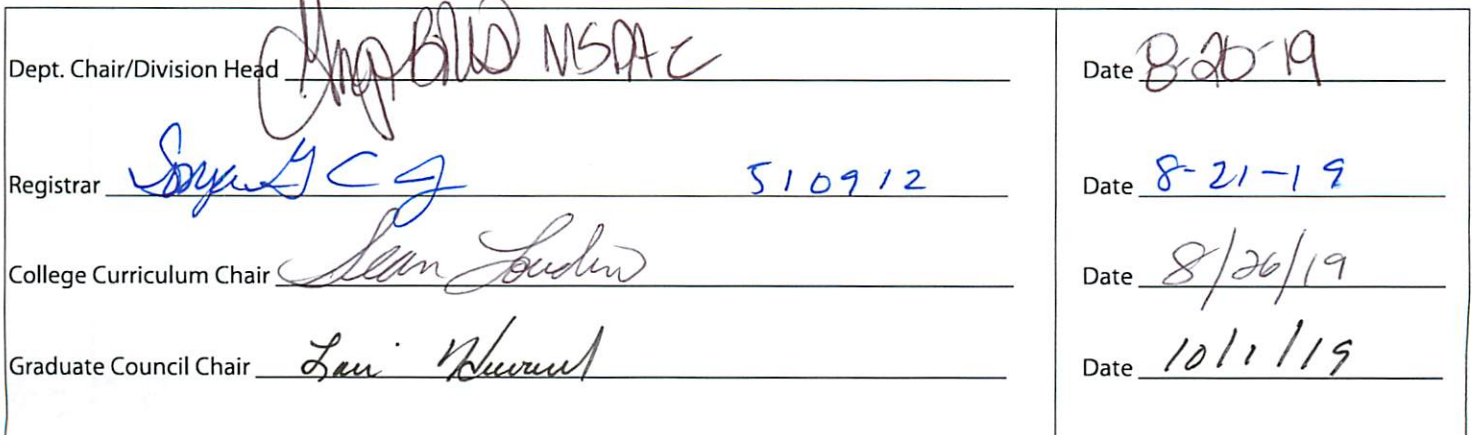 Dept. Chair/Division Head MSPAC Date 8-20-19
Registrar 510912 Date 8-21-19
College Curriculum Chair Sean Loudin Date 8/26/19
Graduate Council Chair Lori Date 10/1/19